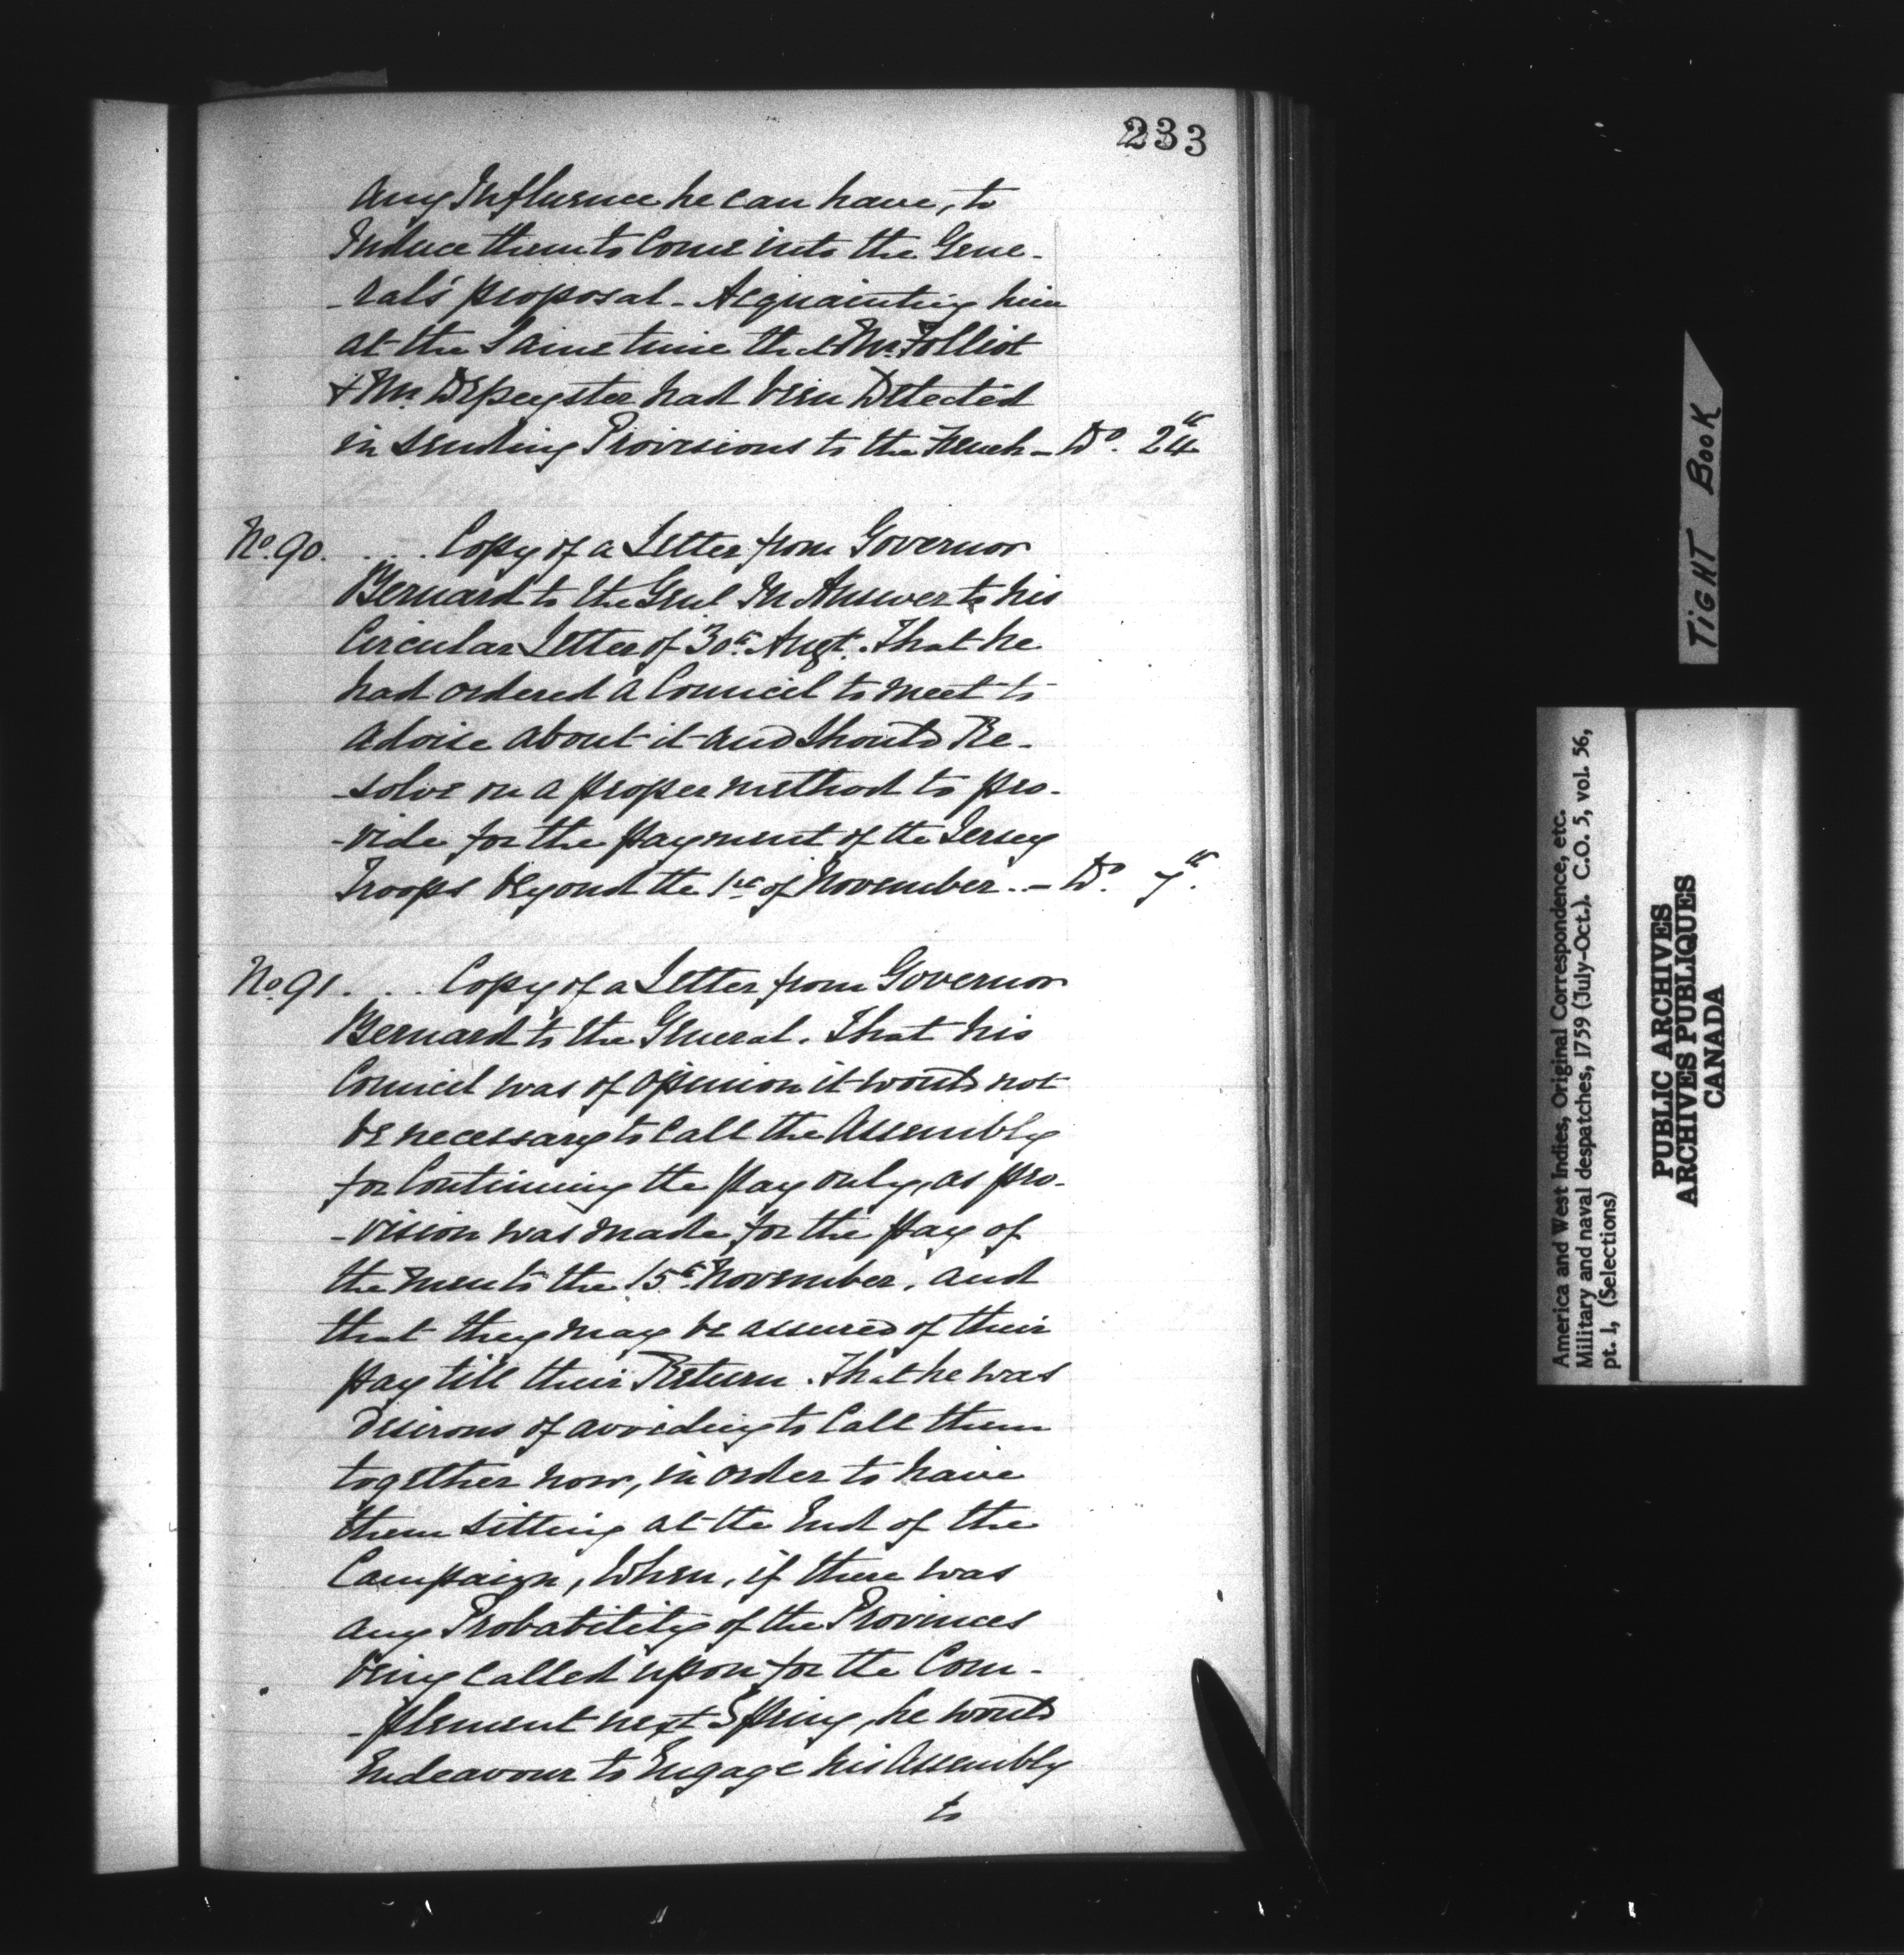 233
any Influence he can have, to
Induce them to Come into the Gene-
-ral's proposal - Acquainting him
at the Same time that Mr. Folliot
& Mr. Depeyster had been Detected
in sending Provisions to the French - Do. 24th
No. 90. . . . Copy of a Letter from Governor
Bernard to the Genl In Answer to his
Circular Letter of 30th Augt. That he
had ordered a Council to meet to
advise about it and should Re-
-solve on a proper method to pro-
-vide for the payment of the Jersey
Troops beyond the 1st of November. - Do. 7th.
No. 91. . . . Copy of a Letter from Governor
Bernard to the General. That his
Council was of opinion it would not
be necessary to Call the Assembly
for Continuing the pay only, as pro-
-vision was made for the pay of
the men to the 15th November, and
that they may be assured of their
pay till their Return. That he was
desirous of avoiding to Call them
together now, in order to have
them sitting at the End of the
Campaign, When, if there was
any Probability of the Provinces
being called upon for the Com-
-plement next Spring, he would
Endeavour to Engage his Assembly
to
TIGHT BOOK
America and West Indies, Original Correspondence, etc.
Military and naval despatches, 1759 (July-Oct.). C.O. 5, vol. 56,
pt. 1, (Selections)
PUBLIC ARCHIVES
ARCHIVES PUBLIQUES
CANADA